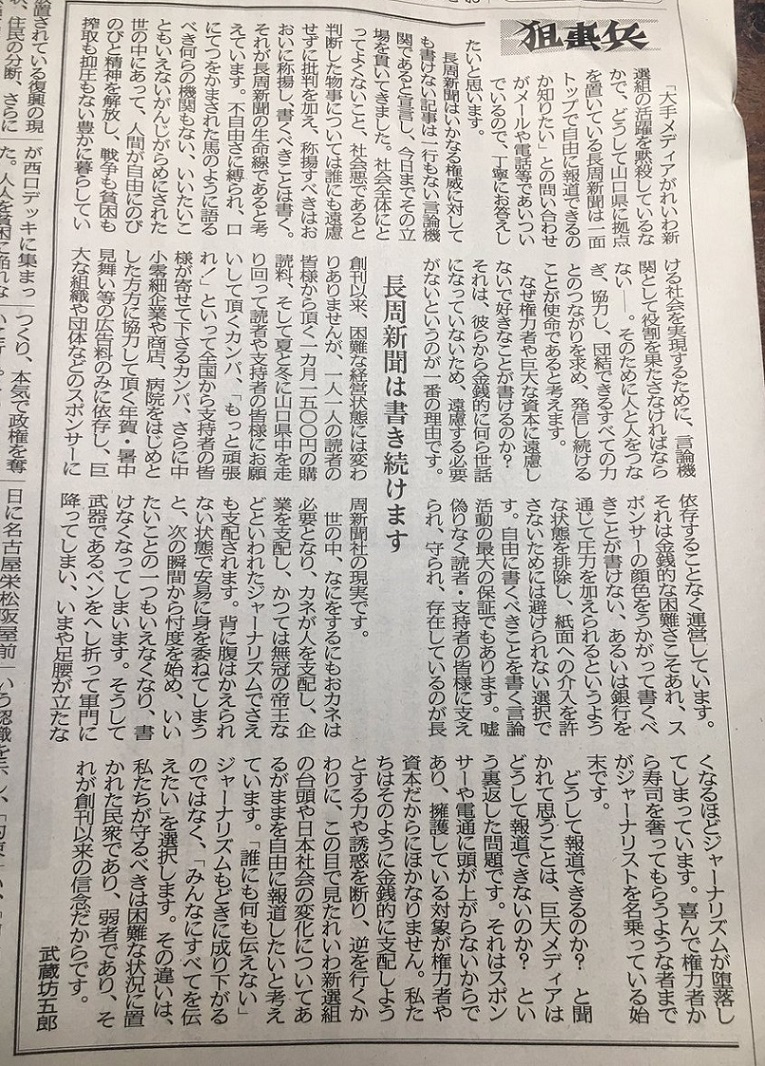 狙撃兵
「大手メディアがれいわ新
選組の活躍を黙殺しているな
かで、どうして山口県に拠点
を置いている長周新聞は一面
トップで自由に報道できるの
か知りたい」との問い合わせ
がメールや電話等であいつい
でいるので、丁寧にお答えし
たいと思います。
長周新聞はいかなる権威に対して
も書けない記事は一行もない言論機
関であると宣言し、今日までその立
場を貫いてきました。社会全体にと
ってよくないこと、社会悪であると
判断した物事については誰にも遠慮
せずに批判を加え、称揚すべきはお
おいに称揚し、書くべきことは書く。
それが長周新聞の生命線であると考
えています。不自由さに縛られ、口
にてつをかまされた馬のように語る
べき何らの機関もない、いいたいこ
ともいえないがんじがらめにされた
世の中にあって、人間が自由にのび
のびと精神を解放し、戦争も貧困も
搾取も抑圧もない豊かに暮らしてい
ける社会を実現するために、言論機
関として役割を果たさなければなら
ない――。そのために人と人をつな
ぎ、協力し、団結できるすべての力
とのつながりを求め、発信し続ける
ことが使命であると考えます。
なぜ権力者や巨大な資本に遠慮し
ないで好きなことが書けるのか？
それは、彼らから金銭的に何ら世話
になっていないため、遠慮する必要
がないというのが一番の理由です。
長周新聞は書き続けます
創刊以来、困難な経営状態には変わ
りありませんが、一人一人の読者の
皆様から頂く一カ月一五〇〇円の購
読料、そして夏と冬に山口県中を走
り回って読者や支持者の皆様にお願
いして頂くカンパ、「もっと頑張
れ！」といって全国から支持者の皆
様が寄せて下さるカンパ、さらに中
小零細企業や商店、病院をはじめと
した方方に協力して頂く年賀・暑中
見舞い等の広告料のみに依存し、巨
大な組織や団体などのスポンサーに
依存することなく運営しています。
それは金銭的な困難さこそあれ、ス
ポンサーの顔色をうかがって書くべ
きことが書けない、あるいは銀行を
通じて圧力を加えられるというよう
な状態を排除し、紙面への介入を許
さないためには避けられない選択で
す。自由に書くべきことを書く言論
活動の最大の保証でもあります。嘘
偽りなく読者・支持者の皆様に支え
られ、守られ、存在しているのが長
周新聞社の現実です。
世の中、なにをするにもおカネは
必要となり、カネが人を支配し、企
業を支配し、かつては無冠の帝王な
どといわれたジャーナリズムでさえ
も支配されます。背に腹はかえられ
ない状態で安易に身を委ねてしまう
と、次の瞬間から忖度を始め、いい
たいことの一つもいえなくなり、書
けなくなってしまいます。そうして
武器であるペンをへし折って軍門に
降ってしまい、いまや足腰が立たな
くなるほどジャーナリズムが堕落し
てしまっています。喜んで権力者か
ら寿司を奢ってもらうような者まで
がジャーナリストを名乗っている始
末です。
どうして報道できるのか？　と聞
かれて思うことは、巨大メディアは
どうして報道できないのか？　とい
う裏返した問題です。それはスポン
サーや電通に頭が上がらないからで
あり、擁護している対象が権力者や
資本だからにほかなりません。私た
ちはそのように金銭的に支配しよう
とする力や誘惑を断り、逆を行くか
わりに、この目で見たれいわ新選組
の台頭や日本社会の変化についてあ
るがままを自由に報道したいと考え
ています。「誰にも何も伝えない」
ジャーナリズムもどきに成り下がる
のではなく、「みんなにすべてを伝
えたい」を選択します。その違いは、
私たちが守るべきは困難な状況に置
かれた民衆であり、弱者であり、そ
れが創刊以来の信念だからです。
武蔵坊五郎
置されている復興の現
、住民の分断、さらに
が西口デッキに集まっ
た。人人を貧困に陥れな
つくり、本気で政権を奪
日に名古屋栄松阪屋前
いう認識を示し、